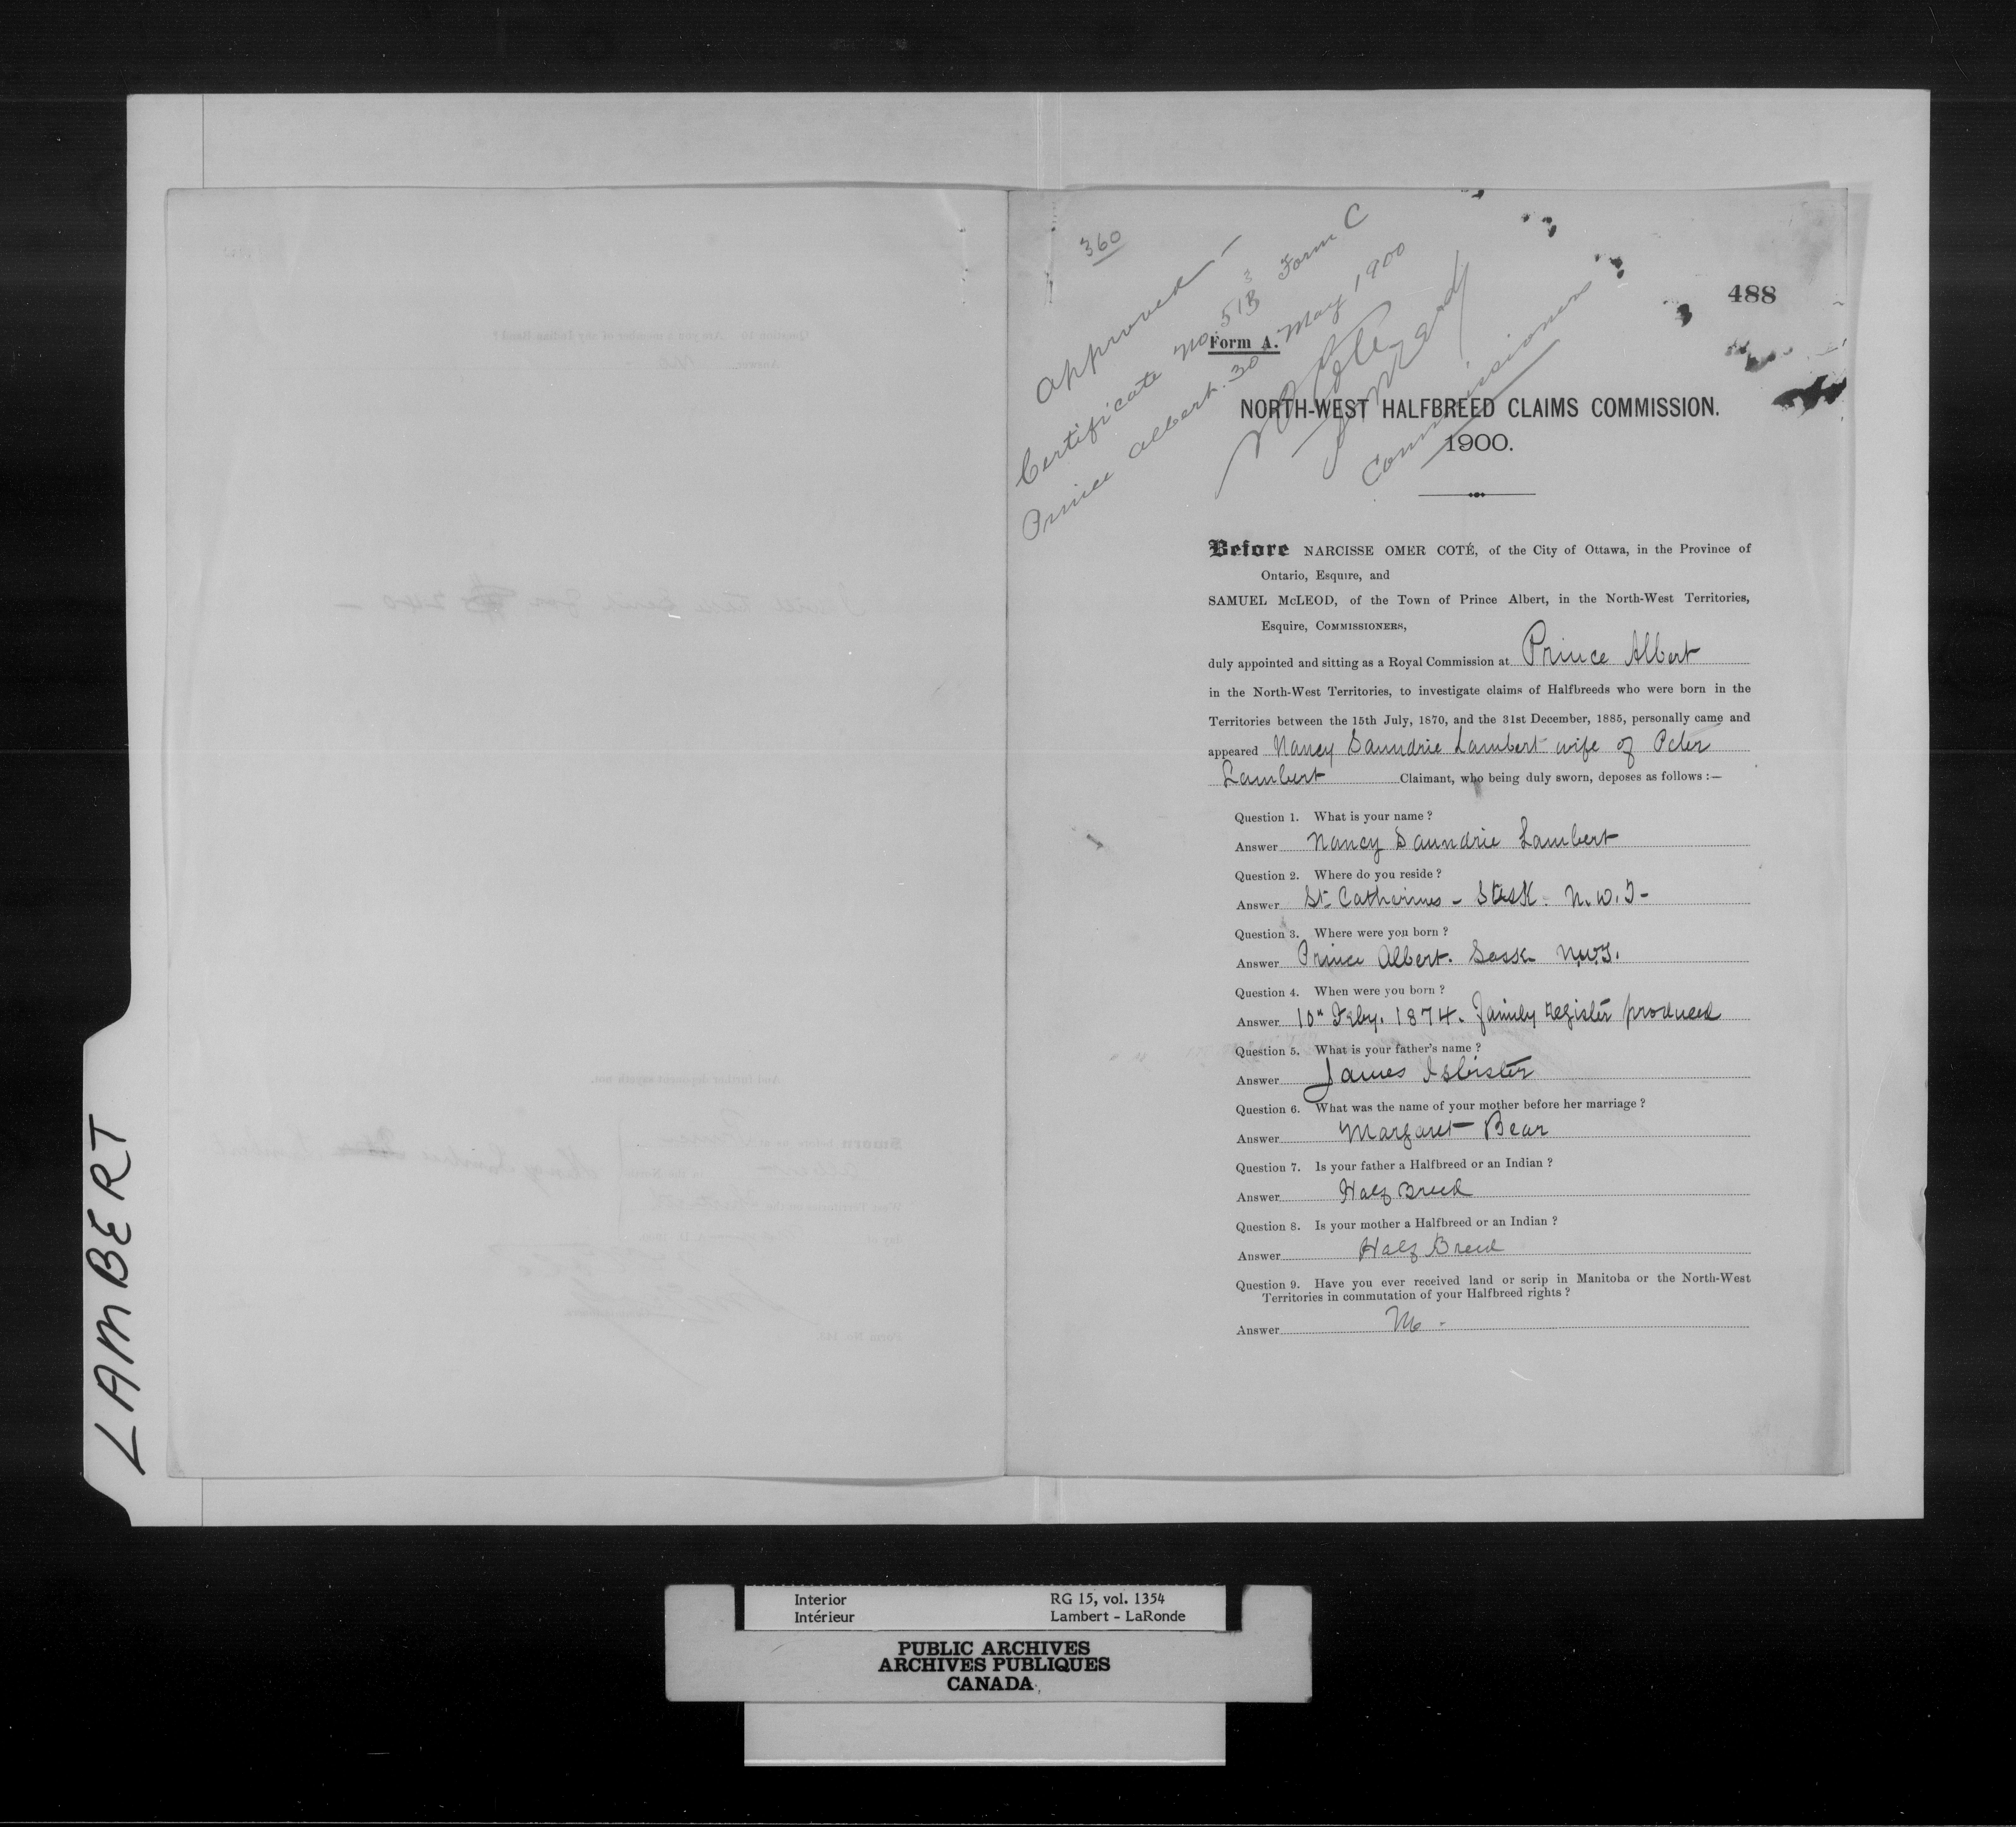 360
488
Approved —
Certificate No 513 Form C
Prince Albert. 30 May 1900
Form A.
Coté
Commissioners
NORTH-WEST HALFBREED CLAIMS COMMISSION.
1900.
Before NARCISSE OMER COTÉ, of the City of Ottawa, in the Province of
Ontario, Esquire, and
SAMUEL McLEOD, of the Town of Prince Albert, in the North-West Territories,
Esquire, COMMISSIONERS,
duly appointed and sitting as a Royal Commission at Prince Albert
in the North-West Territories, to investigate claims of Halfbreeds who were born in the
Territories between the 15th July, 1870, and the 31st December, 1885, personally came and
appeared Nancy Saundrie Lambert wife of Peter
Lambert Claimant, who being duly sworn, deposes as follows :—
Question 1. What is your name ?
Answer Nancy Saundrie Lambert
Question 2. Where do you reside ?
Answer St Catherines - Sask. N.W.T-
Question 3. Where were you born ?
Answer Prince Albert. Sask N.W.T.
Question 4. When were you born ?
Answer 10" Feby. 1874. Family register produced
Question 5. What is your father's name ?
Answer James Isbister
Question 6. What was the name of your mother before her marriage ?
Answer Margaret Bear
Question 7. Is your father a Halfbreed or an Indian ?
Answer Half Breed
Question 8. Is your mother a Halfbreed or an Indian ?
Answer Half Breed
Question 9. Have you ever received land or scrip in Manitoba or the North-West
Territories in commutation of your Halfbreed rights ?
Answer No -
LAMBERT
Interior RG 15, vol. 1354
Intérieur Lambert - LaRonde
PUBLIC ARCHIVES
ARCHIVES PUBLIQUES
CANADA